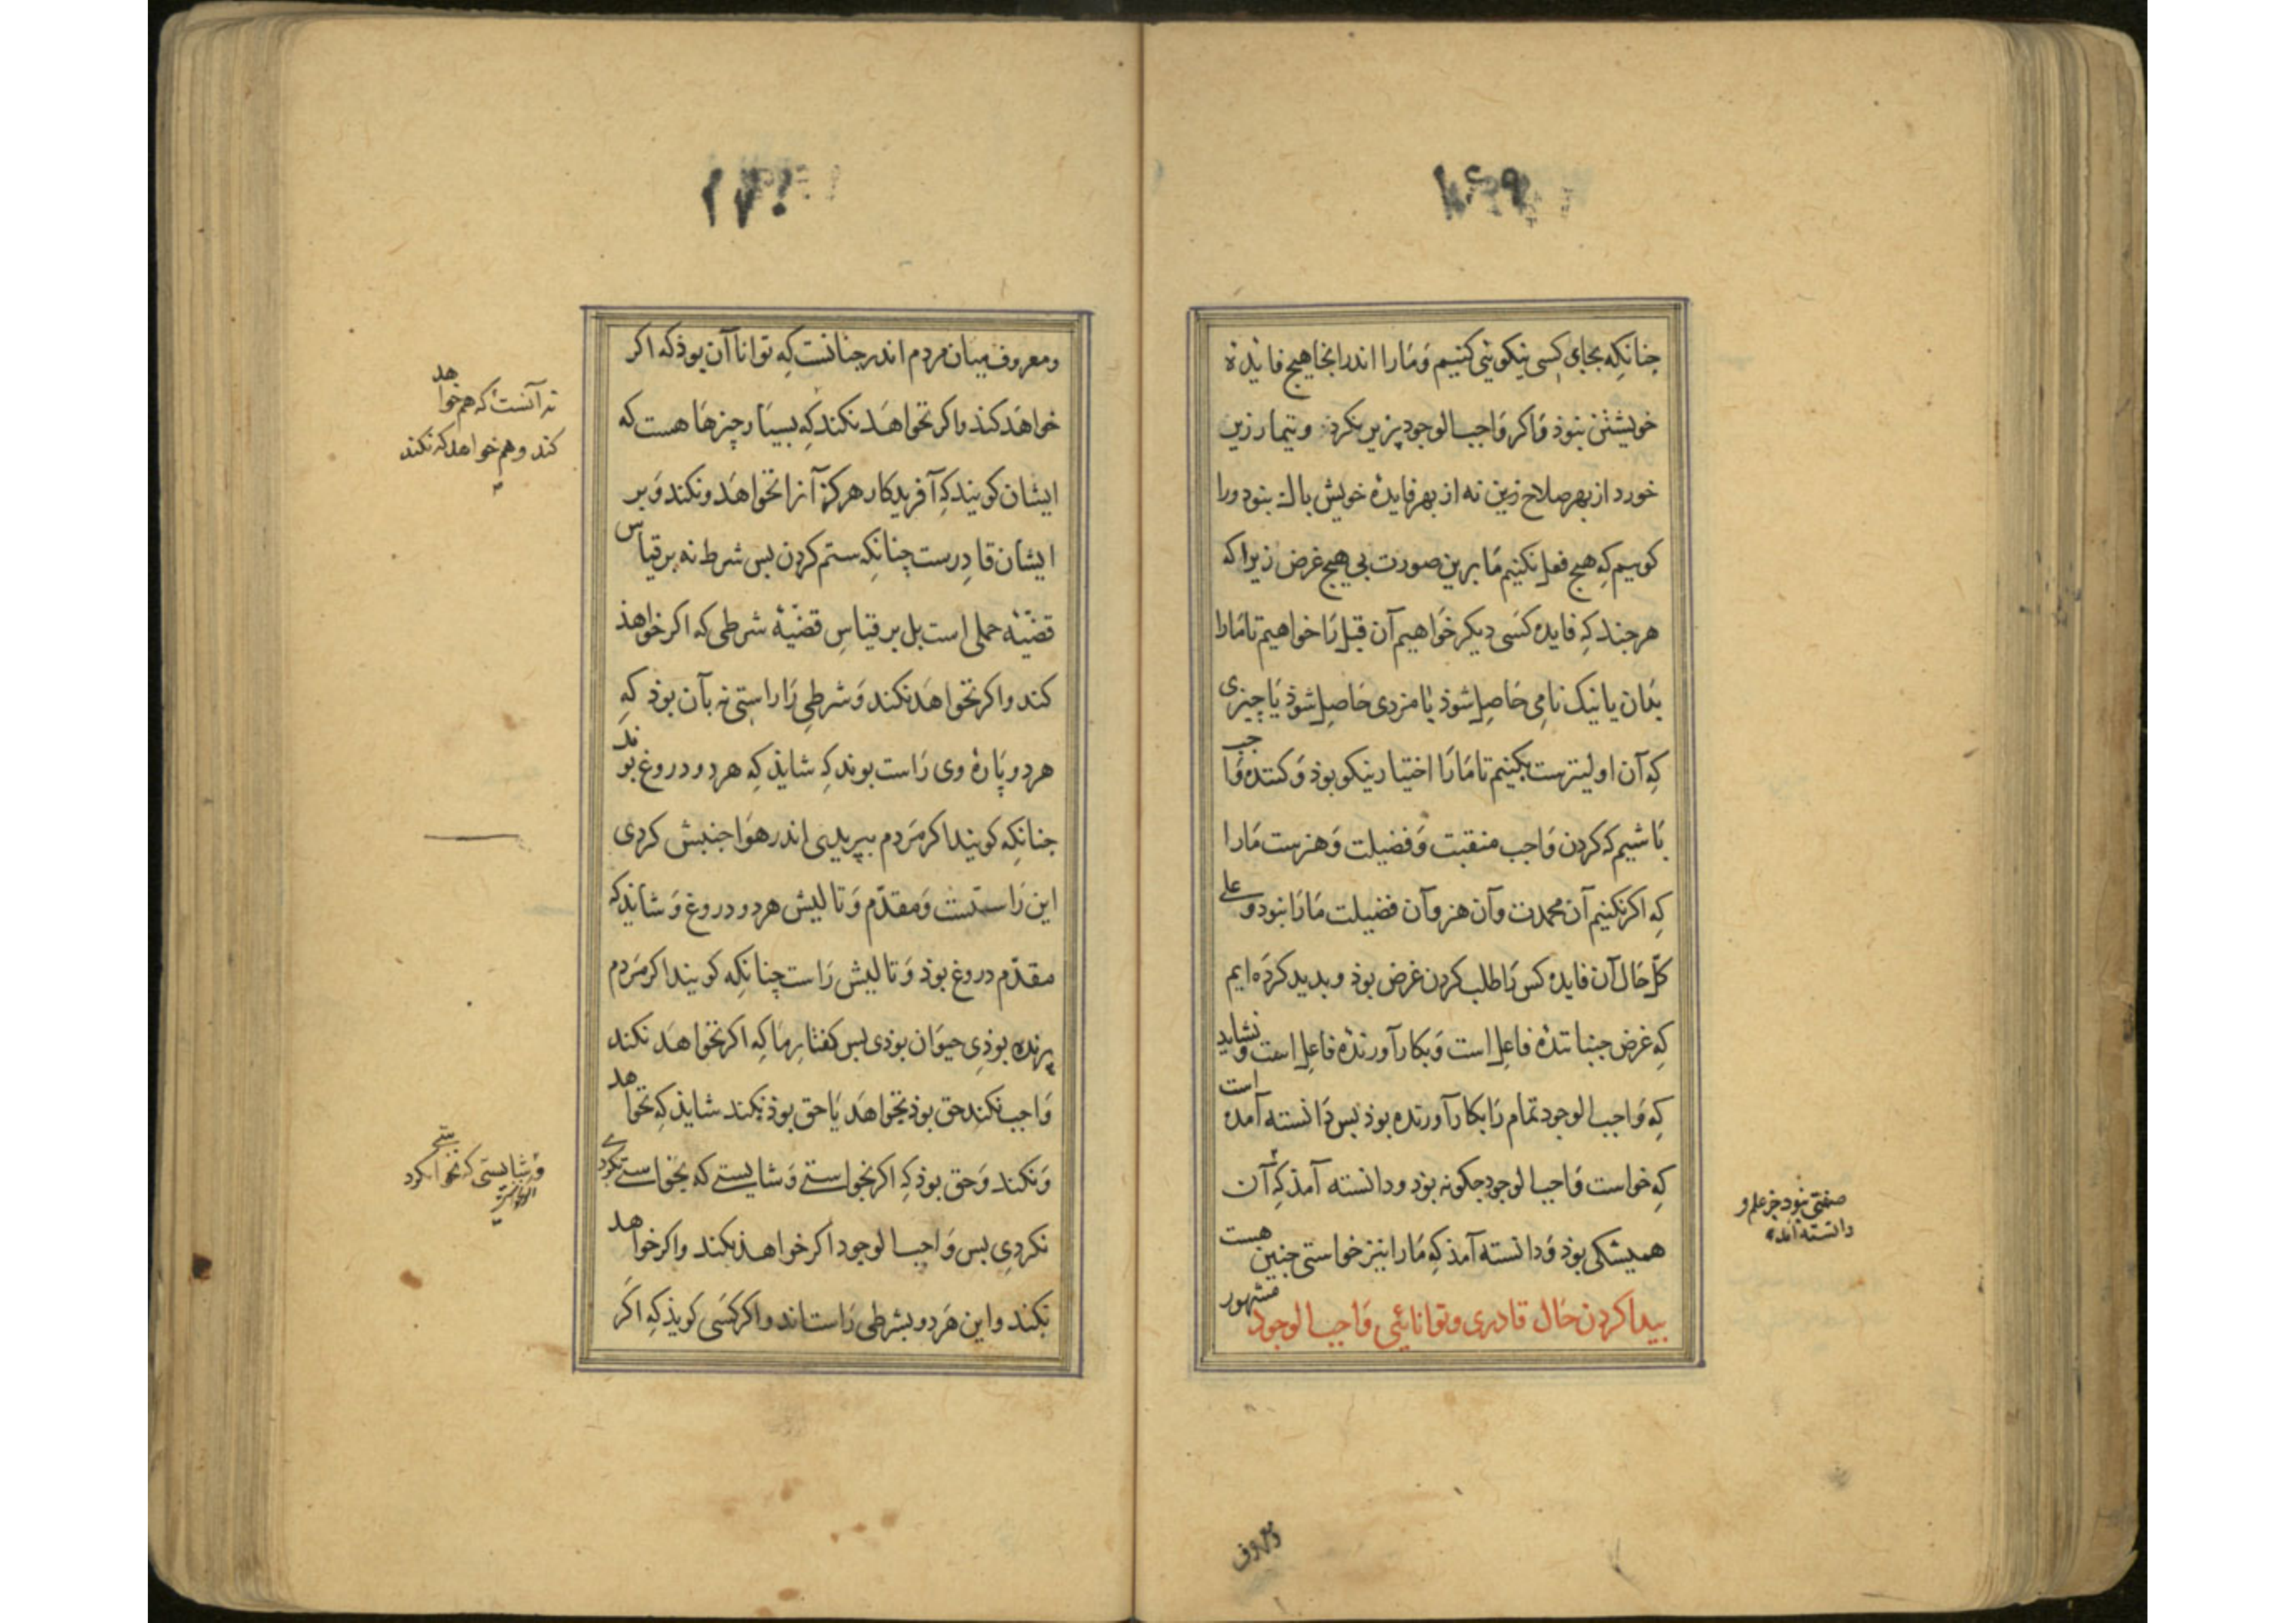 ۱۶۹
چنانکه بجای کسی نیکویئی کنیم وَمَارا اندرانجا هیچ فایدهٔ
خویشتن بنوذ وَاکر وَاجب الوجود برین نکرذ وتیمار زین
خورد از بهر صلاح زمین نه از بهر فایدهٔ خویش باک بنود ورا
کوییم کِه هیچ فعل نکنیم مَا برین صورت بی هیچ غرض زیرا که
هر جند کِه فایده کَسی دیکر خوَاهیم آن قبل رَا خواهیم تا مَارا
بذان یا نیک نامِی حَاصِل شوذ یا مزدی حَاصِل شوذ یَا چیزی
کِه آن اولیترست بکنیم تا مَارَا اختیار نیکو بوذ وَ کننده وَاجب
بَاشیم که کردن وَاجب منقبت وَفضیلت وَهنرست مَارا
کِه اکر نکنیم آن محمدت وآن هنر وآن فضیلت مَارَا نبود وعلی
کلّ حَال آن فایده کس رَا طلب کردن غرض بوذ وبدید کردَه ایم
کِه غرض جنباننذهٔ فاعِل است وَبکار آورنذهٔ فاعِل است ونشاید
کِه وَاجب الوجود تمام رَا بکار آورنده بوذ بس دَانسته آمده است
کِه خواست وَاجب الوجود جکونه بوذ ودانسته آمذ کِه آن
صفتی نبود جز علم و
دانسته آمد
همیشکی بوذ وَدانسته آمذ کِه مَارا نیز خواستی جنین هست
بیدا کردن حَال قادری وتوانائی وَاجب الوجود مشهور
ومعروف
۱۷۰
ومعروف میان مردم اندر جنانست کِه توانا آن بوذ که اکر
خواهَد کنذ واکر نخواهَد نکند کِه بسیَار چیزهَا هست که
نه آنست که هم خواهد
کند وهم خواهد که نکند
ایشان کویند کِه آفریدکار هرکز آنرا نخواهَد ونکند وَبر
ایشان قادِرست چنانکِه ستم کردن بس شرط نه بر قیاس
قضیّهٔ حملی است بل بر قیاسِ قضیّهٔ شرطی که اکر خواهذ
کند واکر نخواهَد نکند وَشرطی رَا راستی نه بآن بوذ کِه
هر دو پَارهٔ وی رَاست بوند کِه شایذ کِه هر دو دروغ بوند
جنانکِه کویند اکر مَردم بپریدی اندر هَوا جنبش کردی
این رَاستست وَمقدّم وَتالیش هر دو دروغ وَشایذ که
مقدّم دروغ بوذ وَتالیش رَاست چنانکِه کویند اکر مَردم
پرنده بوذِی حیوَان بوذی بس کفتار مَا کِه اکر نخواهَد نکند
وَاجب نکند حق بوذ نخواهَد یَا حق بوذ نکند شایذ کِه نخواهد
وَنکند وَحق بوذ کِه اکر نخواستی وَشایستی که نخواستی نکردی
نکردِی بس وَاجب الوجود اکر خواهذ بکند واکر نخواهد
نکند واین هَر دو بشرطی رَاست اند واکر کَسی کویذ کِه اکَر